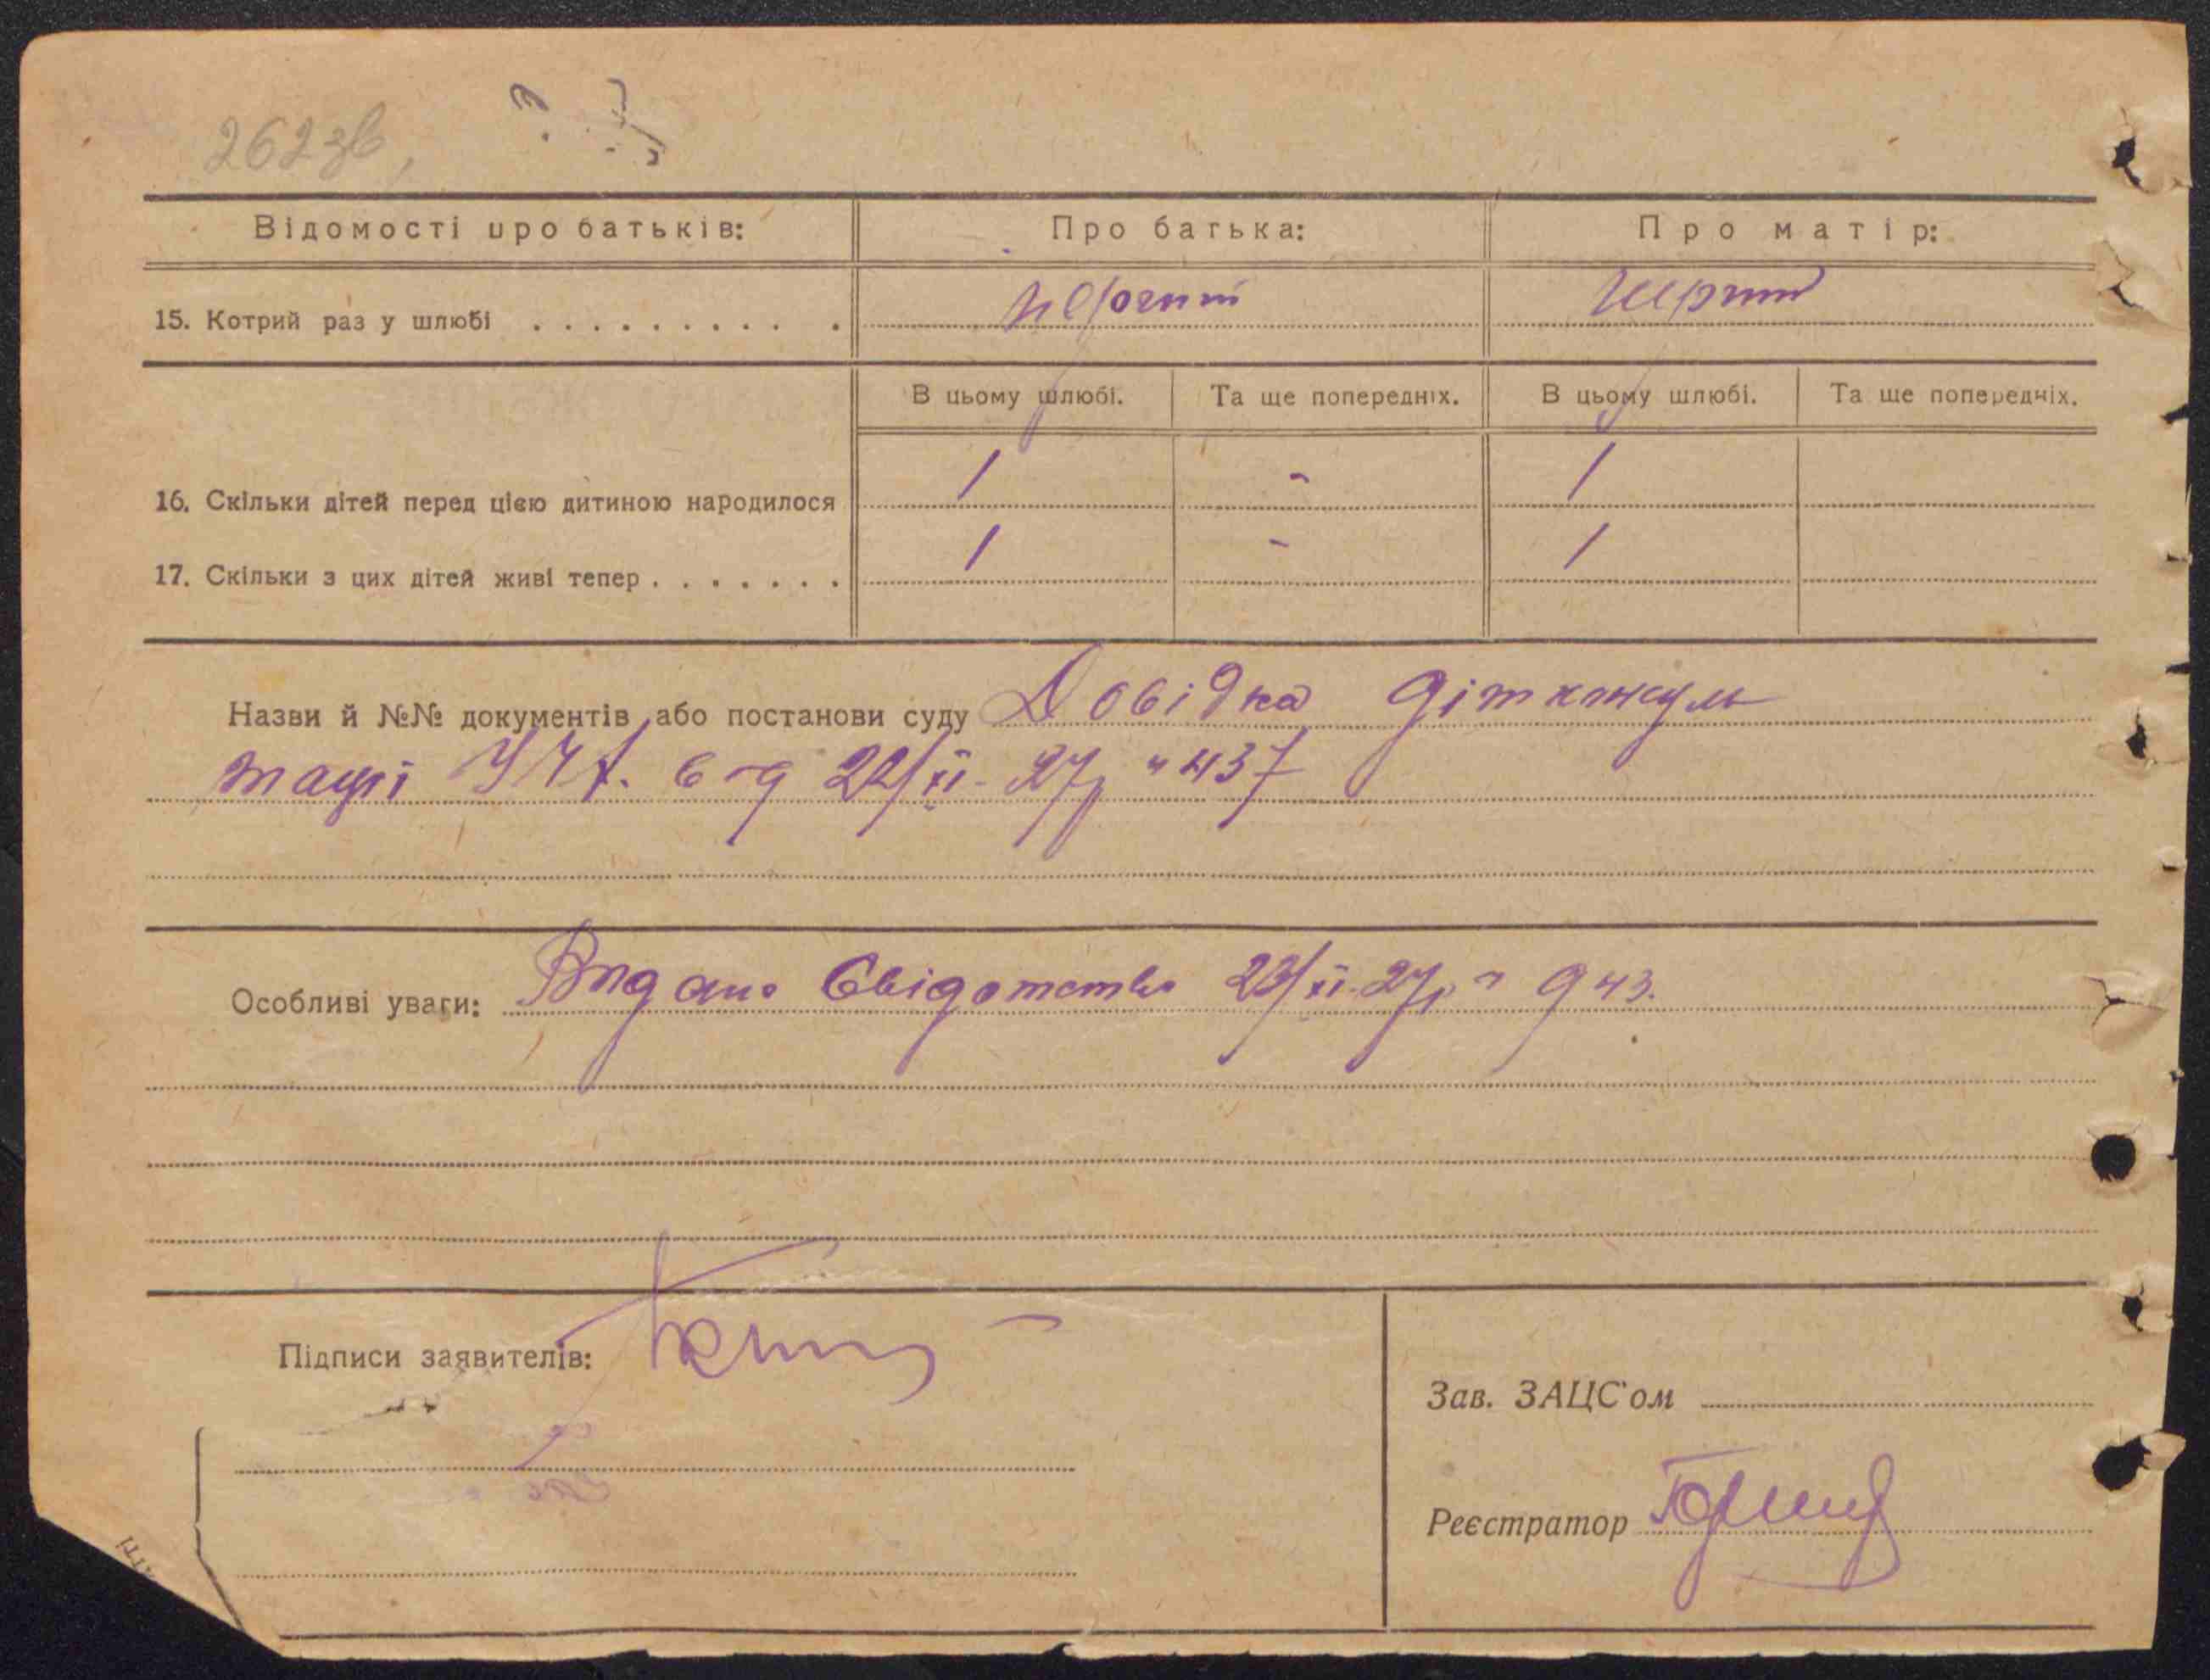 262зв,
Відомості про батьків:
Про батька:
Про матір:
15. Котрий раз у шлюбі . . . . . . . . . .
перший
перший
В цьому шлюбі.
Та ще попередніх.
В цьому шлюбі.
Та ще попередніх.
16. Скільки дітей перед цією дитиною народилося
1
-
1
17. Скільки з цих дітей живі тепер . . . . . . .
1
-
1
Назви й №№ документів або постанови суду Довідка дітконсуль
тації від 22/XI-27р № 437
Особливі уваги: Видано Свідотство 23/XI-27р № 943.
Підписи заявителів:
Зав. ЗАЦС'ом
Реєстратор